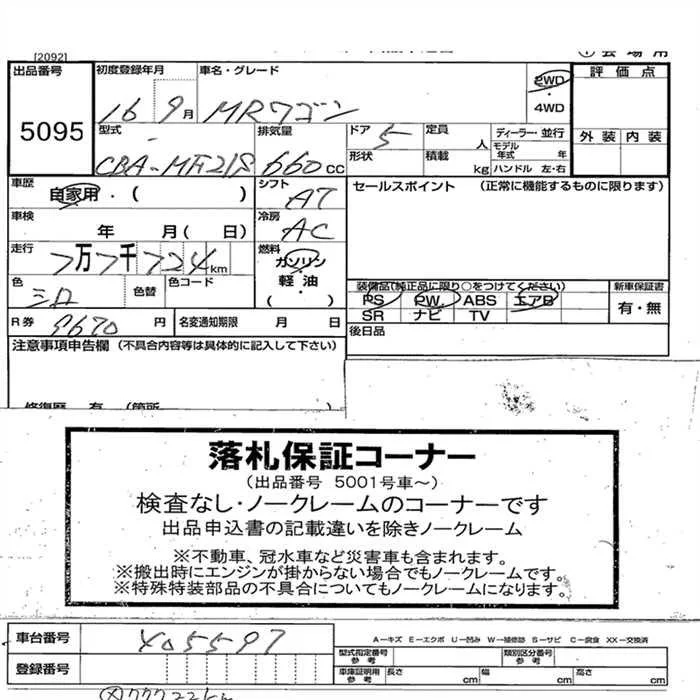 [2092]
出品番号 初度登録年月 車名・グレード 2WD 評価点
5095 16 9月 MRワゴン ・4WD
型式 排気量 ドア 定員 ディーラー・並行 外装 内装
CBA-MF21S 660cc 5 人 モデル年式 年
形状 積載 kg ハンドル 左・右
車歴 自家用・( ) シフト AT セールスポイント (正常に機能するものに限ります)
車検 年 月( 日) 冷房 AC
走行 7万7千724km 燃料 ガソリン・軽油( )
色 シロ 色替 色コード 装備品(純正品に限り○をつけてください) 新車保証書
PS PW ABS エアB 有・無
SR ナビ TV
R券 9670円 名変通知期限 月 日 後日品
注意事項申告欄 (不具合内容等は具体的に記入して下さい)
修復歴 有 (箇所
落札保証コーナー
(出品番号 5001号車～)
検査なし・ノークレームのコーナーです
出品申込書の記載違いを除きノークレーム
※不動車、冠水車など災害車も含まれます。
※搬出時にエンジンが掛からない場合でもノークレームです。
※特殊特装部品の不具合についてもノークレームになります。
車台番号 405597 A－キズ E－エクボ U－凹み W－補修跡 S－サビ C－腐食 XX－交換済
登録番号 型式指定番号 参考 類別区分番号 参考
車庫証明用 参考 長さ cm 幅 cm 高さ cm